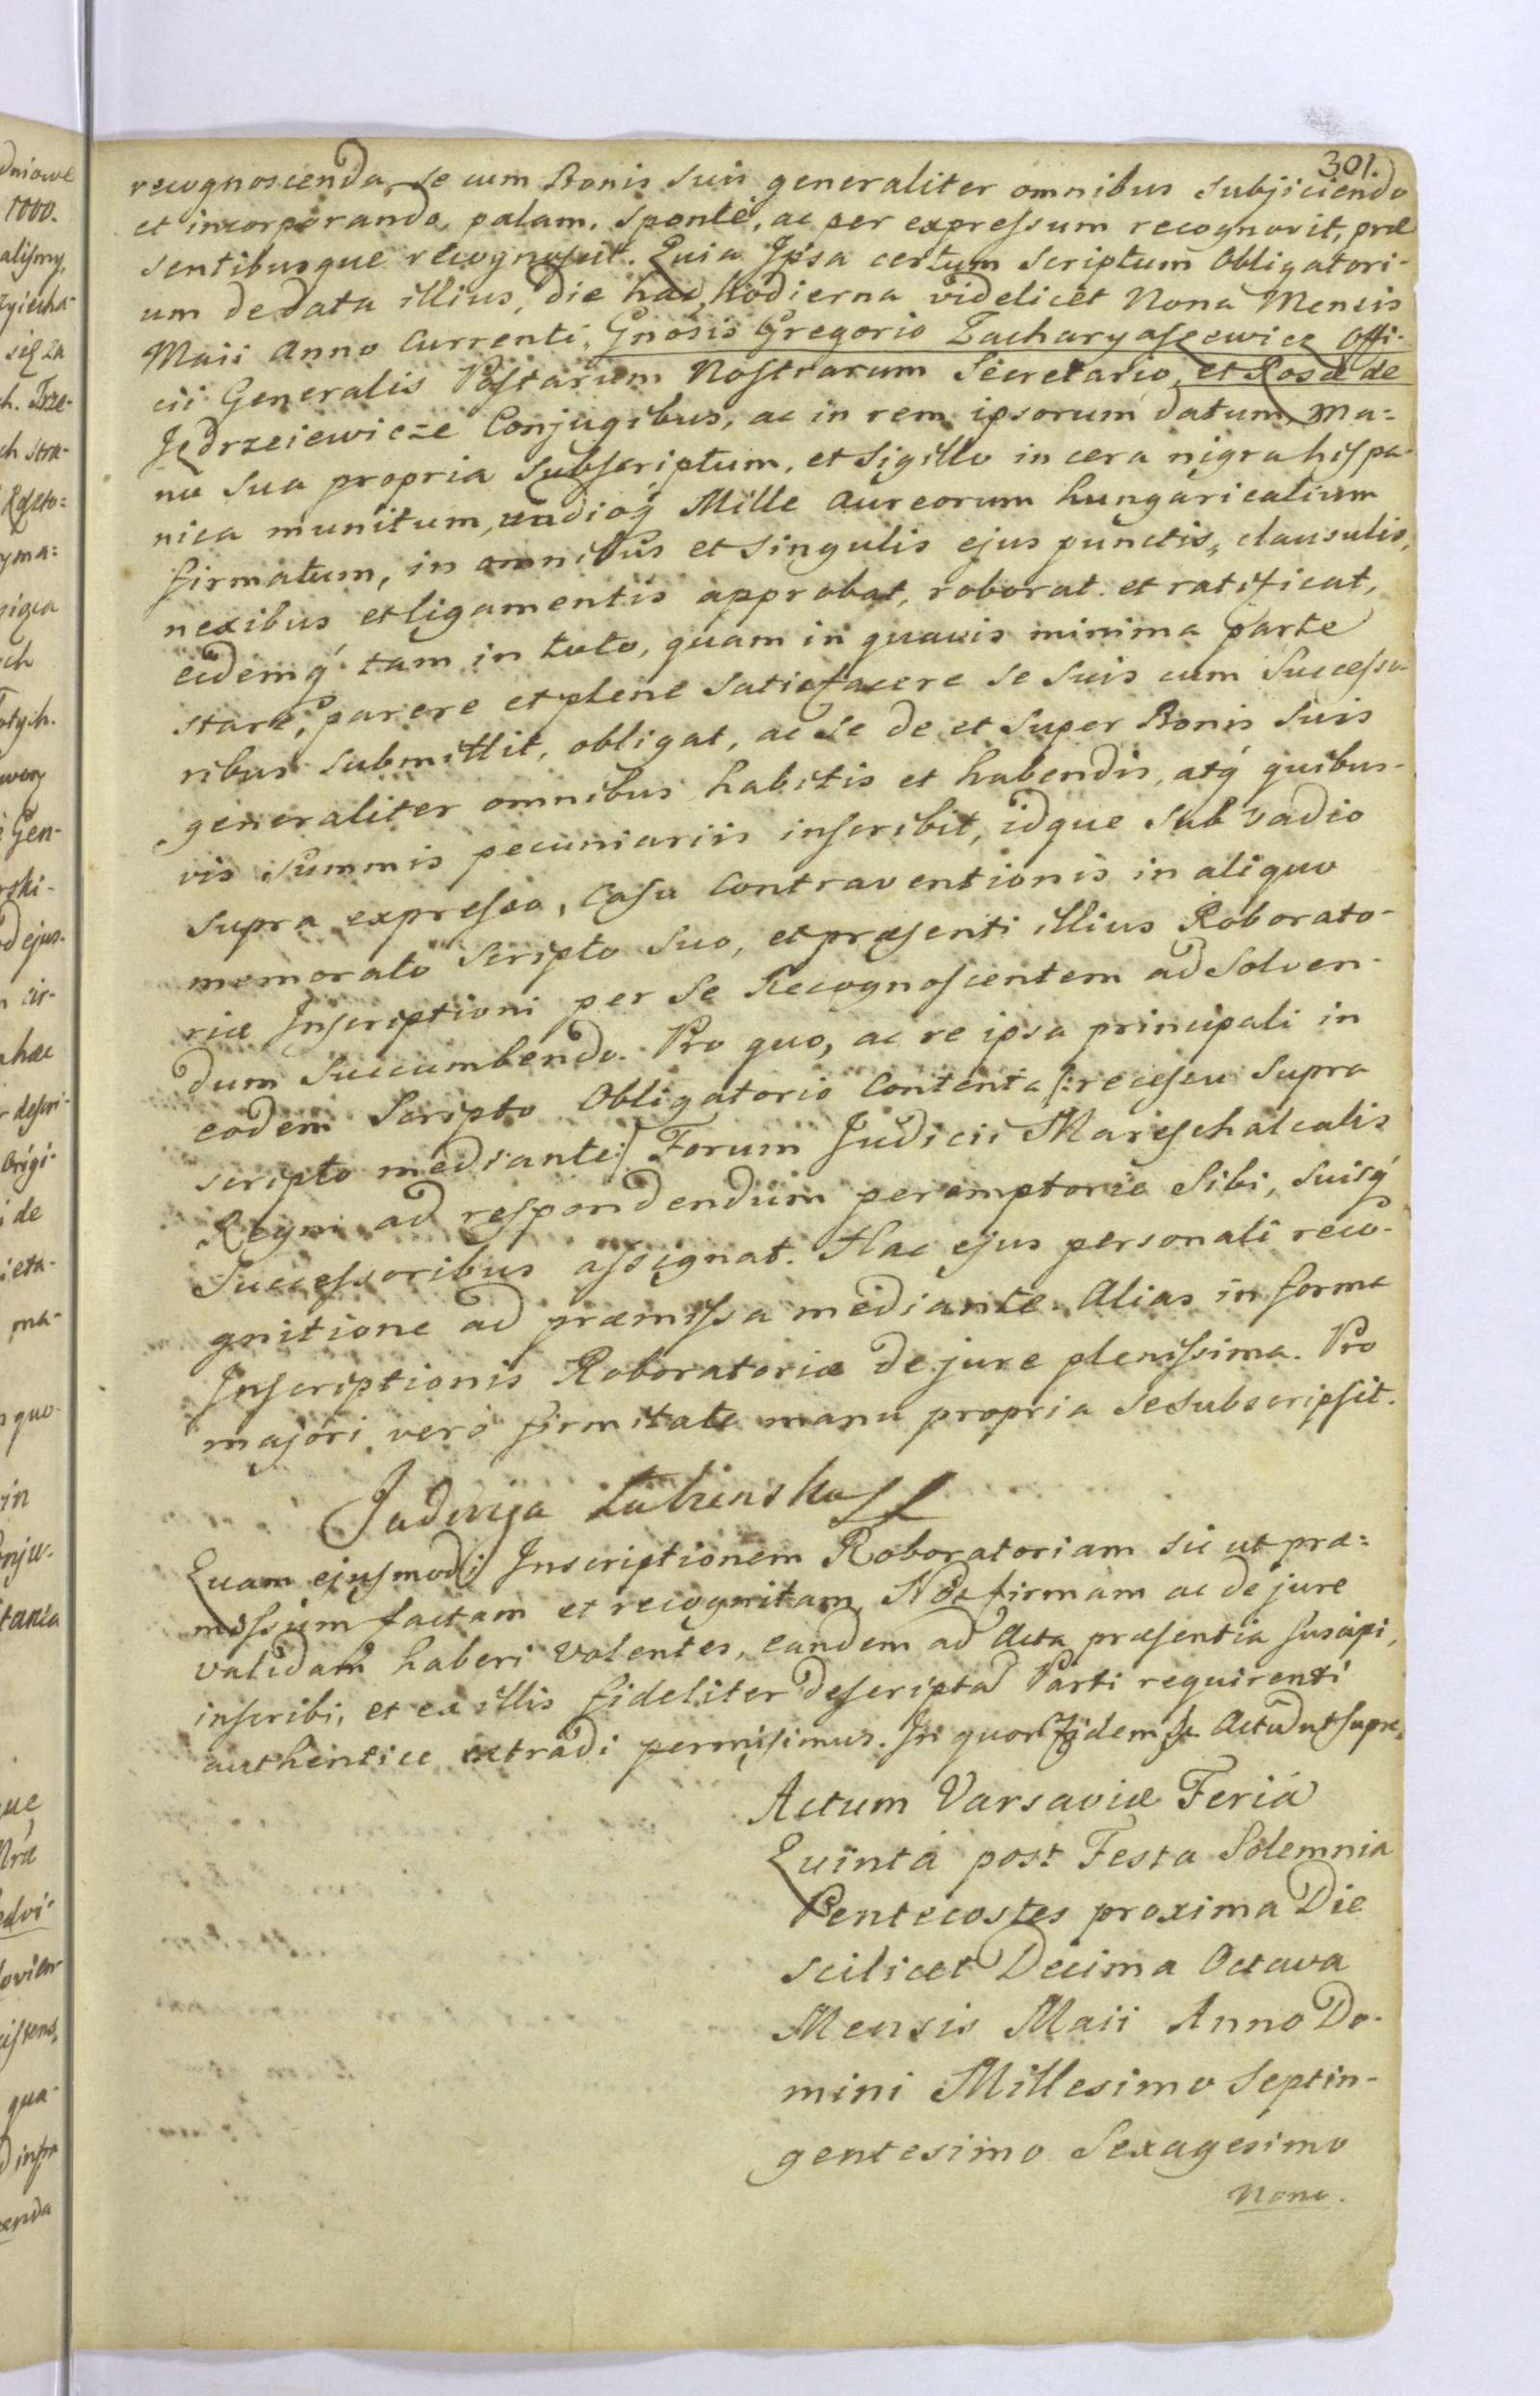 301.
recognoscenda, se cum Bonis suis generaliter omnibus subjiciendo
et incorporando, palam, sponte, ac per expressum recognovit, præ
sentibusque recognoscit. Quia Ipsa certum scriptum Obligatori-
um de data illius, die hac hodierna videlicet Nona Mensis
Maii Anno Currenti, Gnosis Gregorio Zacharyasewicz Offi-
cii Generalis Postarum Nostrarum Secretario, et Rosæ de
Jędrzeiewicze Conjugibus, ac in rem ipsorum datum, ma=
nu sua propria subscriptum, et sigillo in cera nigra hispa-
nica munitum, vadioq́ Mille aureorum hungaricalium
firmatum, in omnibus et singulis ejus punctis, clausulis,
nexibus et ligamentis approbat, roborat et ratificat,
eidemq́ tam in toto, quam in quavis minima parte
stare, parere et plene satisfacere se suis cum Successo-
ribus submittit, obligat, ac se de et super Bonis suis
generaliter omnibus habitis et habendis, atq́ quibus-
vis summis pecuniariis inscribit, idque sub vadio
supra expresso, casu Contraventionis in aliquo
memorato Scripto suo, et præsenti illius Roborato-
riæ Inscriptioni per se Recognoscentem ad solven-
dum succumbendo. Pro quo, ac re ipsa principali in
eodem Scripto Obligatorio Contenta /:recessu supra
scripto mediante:/ Forum Judicii Mareschalcalis
Regni ad respondendum peremptorie Sibi, suisq́
Successoribus assignat. Hac ejus personali reco-
gnitione ad præmissa mediante. Alias in forma
Inscriptionis Roboratoriæ de jure plenissima. Pro
majori verò firmitate manu propria se subscripsit.
Jadwiga Łubinska
Quam ejusmodi Inscriptionem Roboratoriam sic ut præ=
missum factam et recognitam, Nos firmam ac de jure
validam haberi volentes, eandem ad Acta præsentia suscipi,
inscribi, et ex illis fideliter descripta Parti requirenti
authentice extradi permisimus. In quor fidem Actũ ut supra.
Actum Varsaviæ Feriâ
Quintâ post Festa Solemnia
Pentecostes proxima Die
scilicet Decima Octava
Mensis Maii Anno Do-
mini Millesimo Septin-
gentesimo Sexagesimo
Nono.